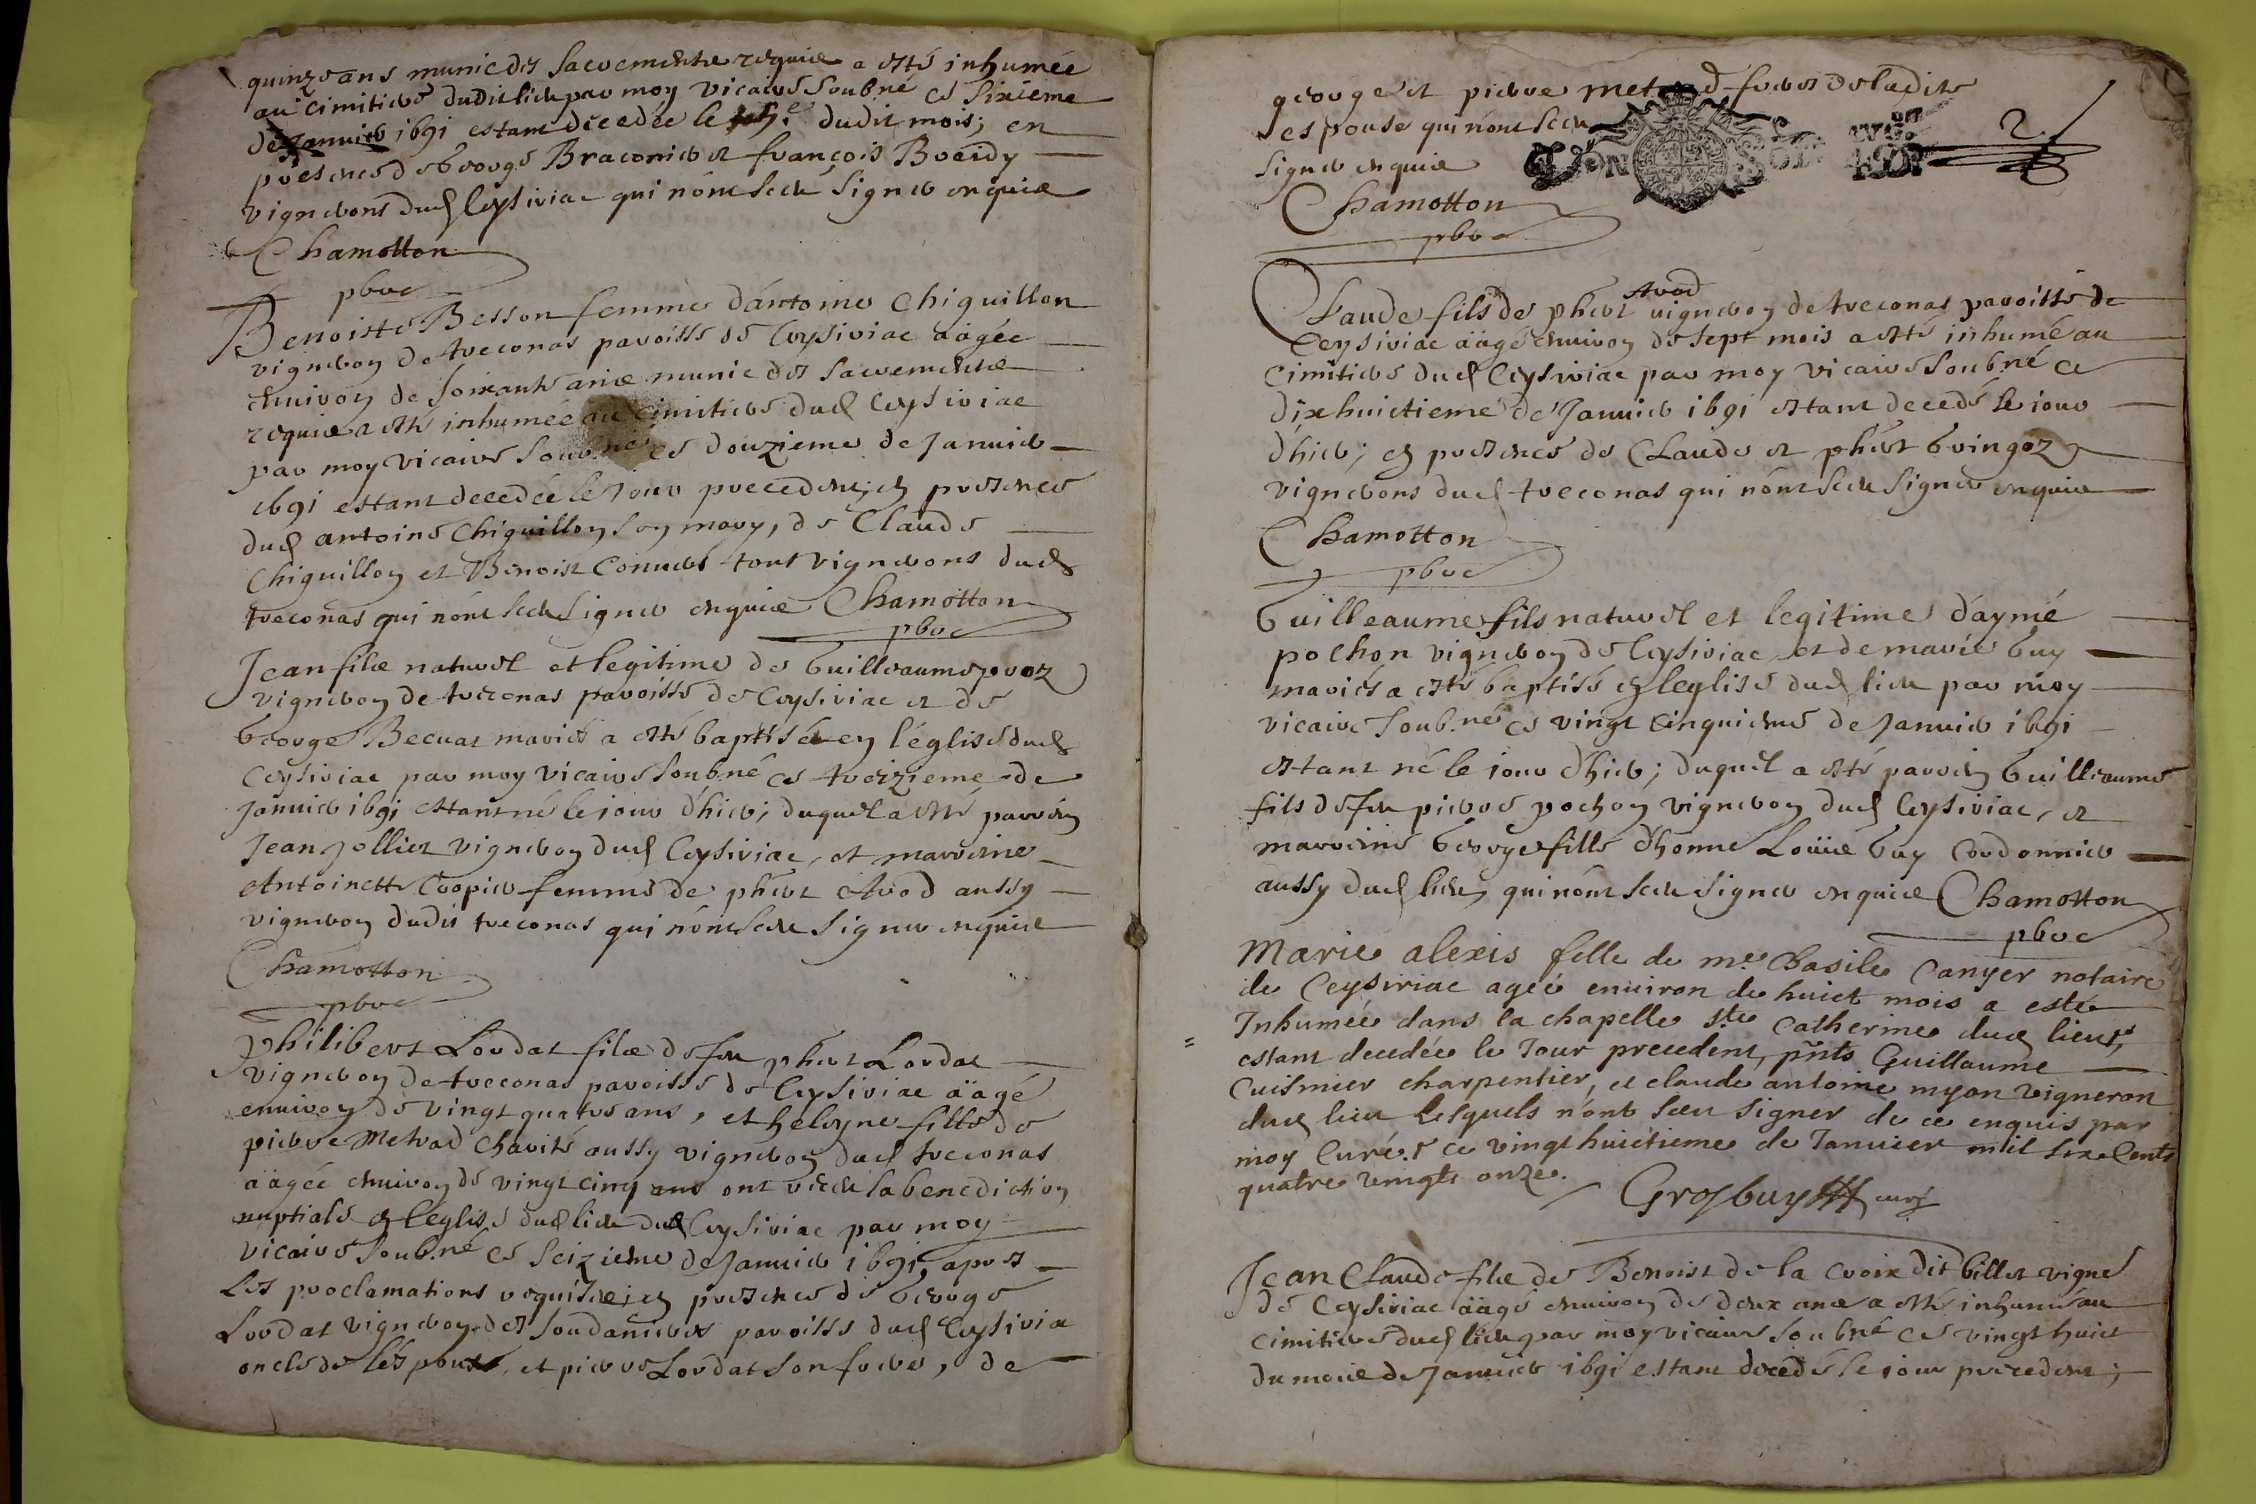 quinze ans munie des sacrements requis a esté inhumée
au cimitiere dudit lieu par moy vicaire soubné ce sixieme
de Janvier 1691 estant decedée le dudit mois; en
presence de George Braconier et françois
vignerons dud Ceysiriac qui n'ont sceu signer enquis
Chamotton
pbre
Benoiste Besson femme d'antoine Chiquillon
vigneron de treconas paroisse de Ceysiriac aâgée
environ de soixante ans munie des sacrements
requis a esté inhumée au cimitiere dud Ceysiriac
par moy vicaire soubné ce douzieme de Janvier
1691 estant decedée le Jour precedent; en presence
dud antoine Chiquillon son mary, de Claude
Chiquillon et Benoist tous vignerons dud
treconas qui n'ont sceu signer enquis Chamotton
pbre
Jean fils naturel et legitime de Guilleaume provoz
vigneron de treconas paroisse de Ceysiriac et de
George Becuat mariés a esté baptisé en l'église dud
Ceysiriac par moy vicaire soubné ce treizieme de
Janvier 1691 estant né le jour d'hier; duquel a esté parrein
Jean Jolliet vigneron dud Ceysiriac, et marreine
Antoinette Cropier femme de phbert Avod aussy
vigneron dudit treconas qui n'ont sceu signer enquis
Chamotton
pbre
Philibert Lordat fils de feu phbert Lordat
vigneron de treconas paroisse de Ceysiriac aâgé
environ de vingt quatre ans, et heleyne fille de
pierre Metrad Charité aussy vigneron dud treconas
aâgée environ de vingt cinq ans ont receu la benediction
nuptiale en l'église dud lieu dud Ceysiriac par moy
vicaire soubné ce seizieme de Janvier 1691, apres
les proclamations requises; en presence de George
Lordat vigneron des soudanieres paroisse dud Ceysiria
oncle de l'espoux, et pierre Lordat son frere, de
george et pierre metrad freres de ladite
espouse qui n'ont sceu
signer enquis
Chamotton
pbre
GEN 2
Avod
Claude fils de phbert vigneron de treconas paroisse de
Ceysiriac aâgé environ de sept mois a esté inhumé au
cimitiere dud Ceysiriac par moy vicaire soubné ce
dixhuictieme de Janvier 1691 estant decedé le jour
d'hier; en presence de Claude et phbert Gringoz
vignerons dud treconas qui n'ont sceu signer enquis
Chamotton
pbre
Guilleaume fils naturel et legitime d'aymé
pochon vigneron de Ceysiriac, et de marie Guy
mariés a esté baptisé en l'eglise dud lieu par moy
vicaire soubné ce vingt cinquieme de Janvier 1691
estant né le jour d'hier; duquel a esté parrein Guilleaume
fils de feu pierre pochon vigneron dud Ceysiriac, et
marreine George fille d'honne Loüis Guy Cordonnier
aussy dud lieu, qui n'ont sceu signer enquis Chamotton
pbre
Marie alexis fille de me Basile Canyer notaire
de Ceysiriac ageé environ de huict mois a esté
Inhumeé dans la chapelle ste Catherine dud lieu,
estant decedée le Jour precedent, pnts Guillaume
Cuisinier charpentier, et claude antoine myon vigneron
dud lieu lesquels n'ont sceu signer de ce enquis par
moy Curé ce vingt huictieme de Janvier mil six Cents
quatre vingts onze.
Grosbuy curé
Jean Claude fils de Benoist de la Croix dit billet vigne
de Ceysiriac aâgé environ de deux ans a esté inhumé au
cimitiere dud lieu par moy vicaire soubné ce vingt huict
du mois de Janvier 1691 estant decedé le jour precedent;